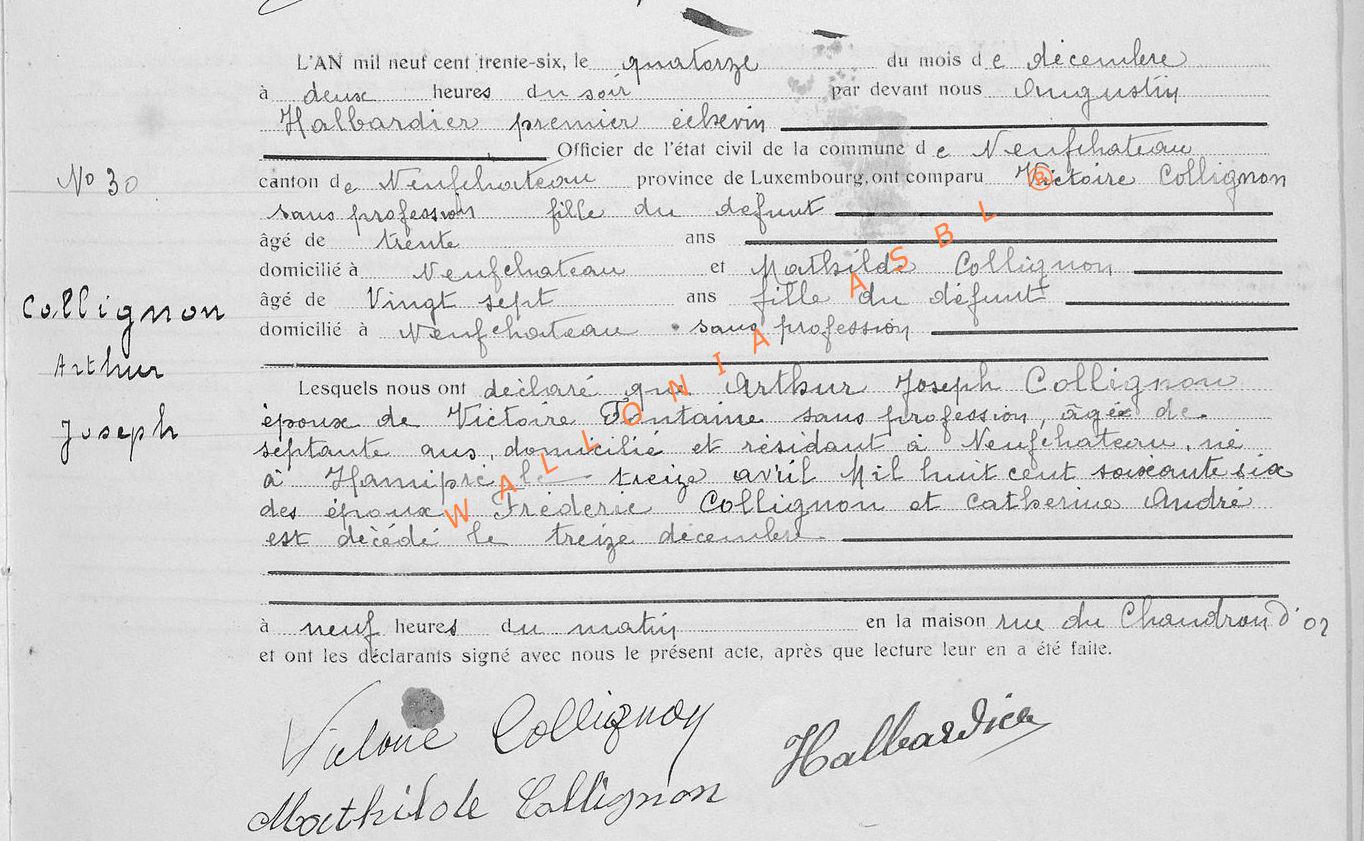 L'AN mil neuf cent trente-six, le quatorze du mois de décembre
à deux heures du soir par devant nous Augustin
Halbardier premier échevin
Officier de l'état civil de la commune de Neufchateau
No 30
canton de Neufchateau province de Luxembourg, ont comparu Victoire Collignon
sans profession fille du défunt
âgé de trente ans
domicilié à Neufchateau et Mathilde Collignon
âgé de Vingt sept ans fille du défunt
Collignon
Arthur
Joseph
domicilié à Neufchateau sans profession
Lesquels nous ont déclaré que Arthur Joseph Collignon
époux de Victoire Fontaine sans profession, âgé de
septante ans, domicilié et résidant à Neufchateau, né
à Hamipré le treize avril Mil huit cent soixante six
des époux Fréderic Collignon et Catherine André
est décédé le treize décembre
à neuf heures du matin en la maison rue du Chaudron d'or
et ont les déclarants signé avec nous le présent acte, après que lecture leur en a été faite.
Victoire Collignon
Halbardier
Mathilde Collignon
WALLONIA ASBL ®